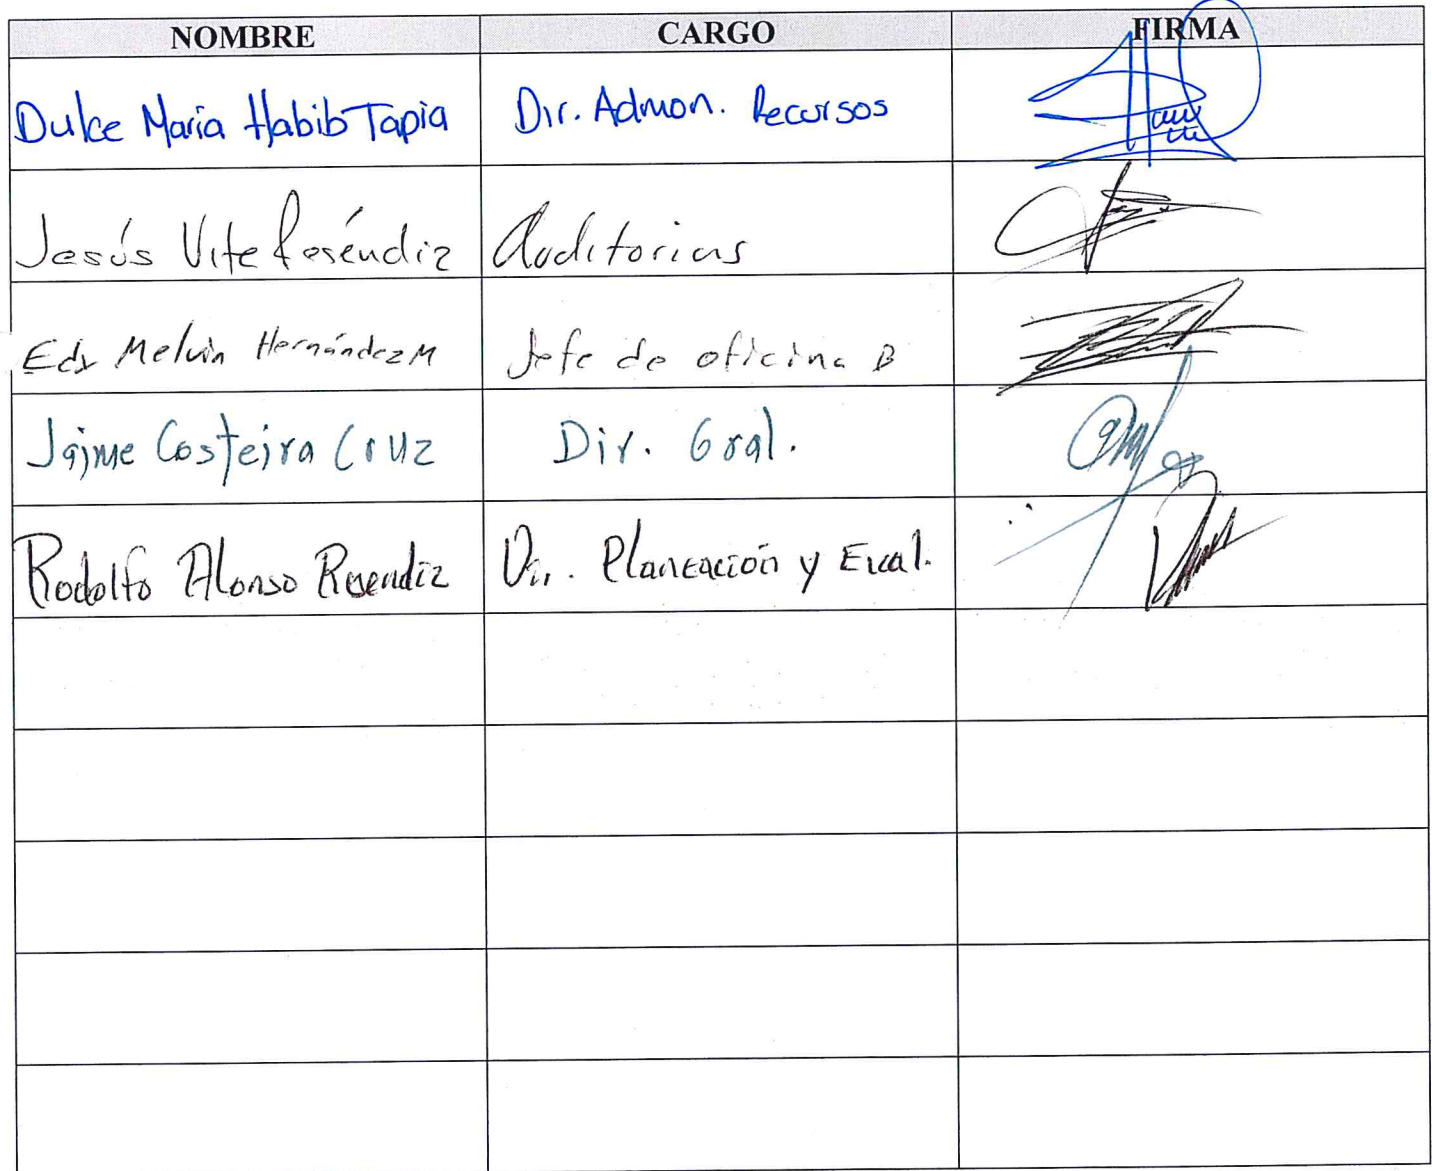 NOMBRE CARGO FIRMA
Dulce Maria Habib Tapia Dir. Admon. Recursos
Jesús Vite Reséndiz Auditorias
Edy Melvin Hernández M Jefe de oficina B
Jaime Costeira Cruz Dir. Gral.
Rodolfo Alonso Resendiz Dir. Planeación y Eval.